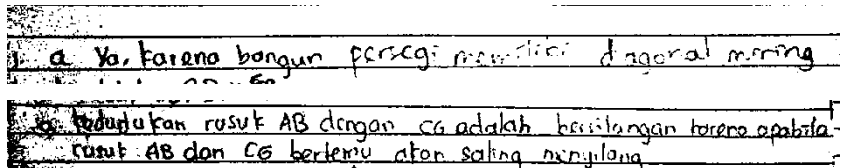 1. a Ya, karena bangun persegi memiliki diagonal miring
a kedudukan rusuk AB dengan CG adalah bersilangan karena apabila
rusuk AB dan CG bertemu akan saling menyilang